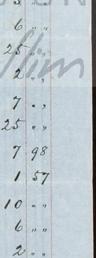 6 " "
25 " "
2 " "
7 " "
25 " "
7 98
1 57
10 " "
6 " "
2 " "